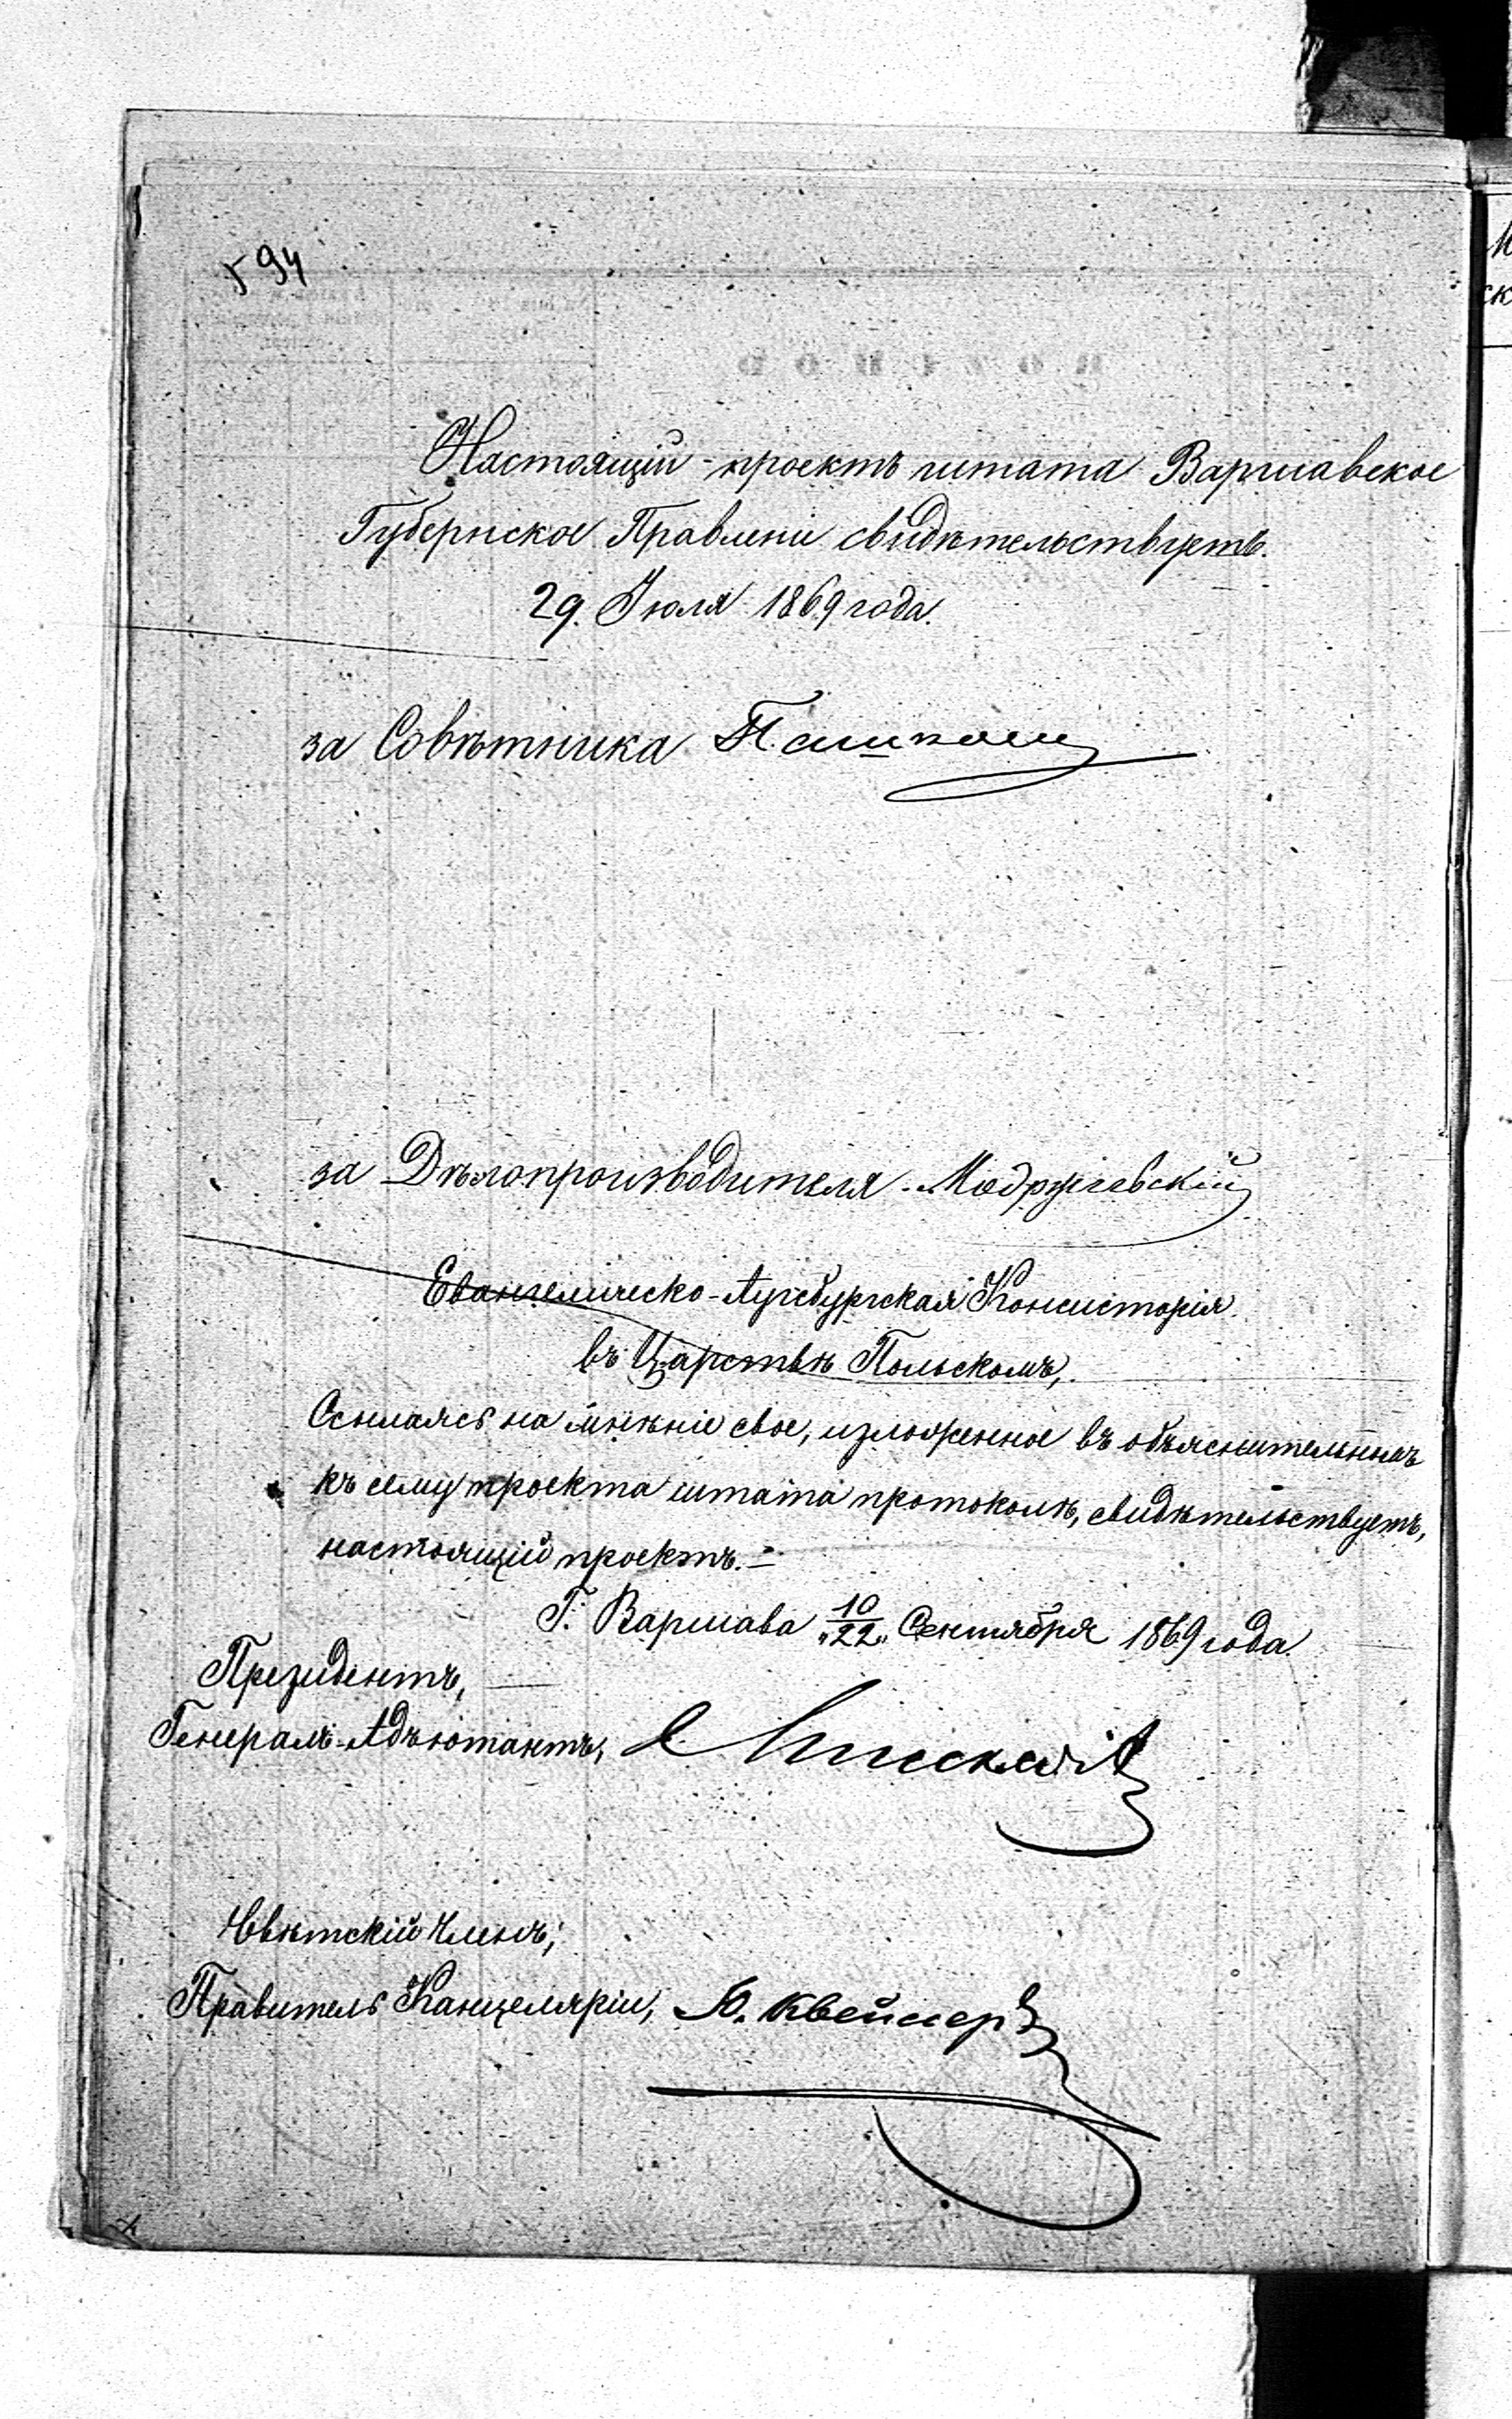 594
Настоящій проектъ штата Варшавское
Губернское Правленіе свидѣтельствуетъ.
29. Іюля 1869 года.
за Совѣтника
за Дѣлопроизводителя Модржевскій
Евангелическо-Аугсбургская Консисторія
въ Царствѣ Польскомъ,
Ссылаясь на мнѣніе свое, изложенное въ объяснительномъ
къ сему проекта штата протоколѣ, свидѣтельствуетъ,
настоящій проектъ.
Г. Варшава 10/22 Сентября 1869 года.
Президентъ,
Генералъ-Адъютантъ,
Свѣтскій Членъ,
Правитель Канцеляріи,